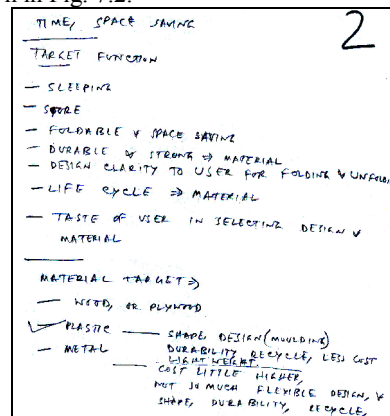 n in Fig. 7.2.
2
TIME, SPACE SAVING
TARGET FUNCTION
— SLEEPING
— STORE
— FOLDABLE & SPACE SAVING
— DURABLE & STRONG ⇒ MATERIAL
— DESIGN CLARITY TO USER FOR FOLDING & UNFOLDI
— LIFE CYCLE ⇒ MATERIAL
— TASTE OF USER IN SELECTING DESIGN &
MATERIAL
MATERIAL TARGET ⇒
— WOOD, OR PLYWOOD
✓ PLASTIC — SHAPE, DESIGN (MOULDING)
DURABILITY RECYCLE, LESS COST
LIGHT WEIGHT.
— METAL — COST LITTLE HIGHER,
NOT SO MUCH FLEXIBLE DESIGN, &
SHAPE, DURABILITY, RECYCLE,